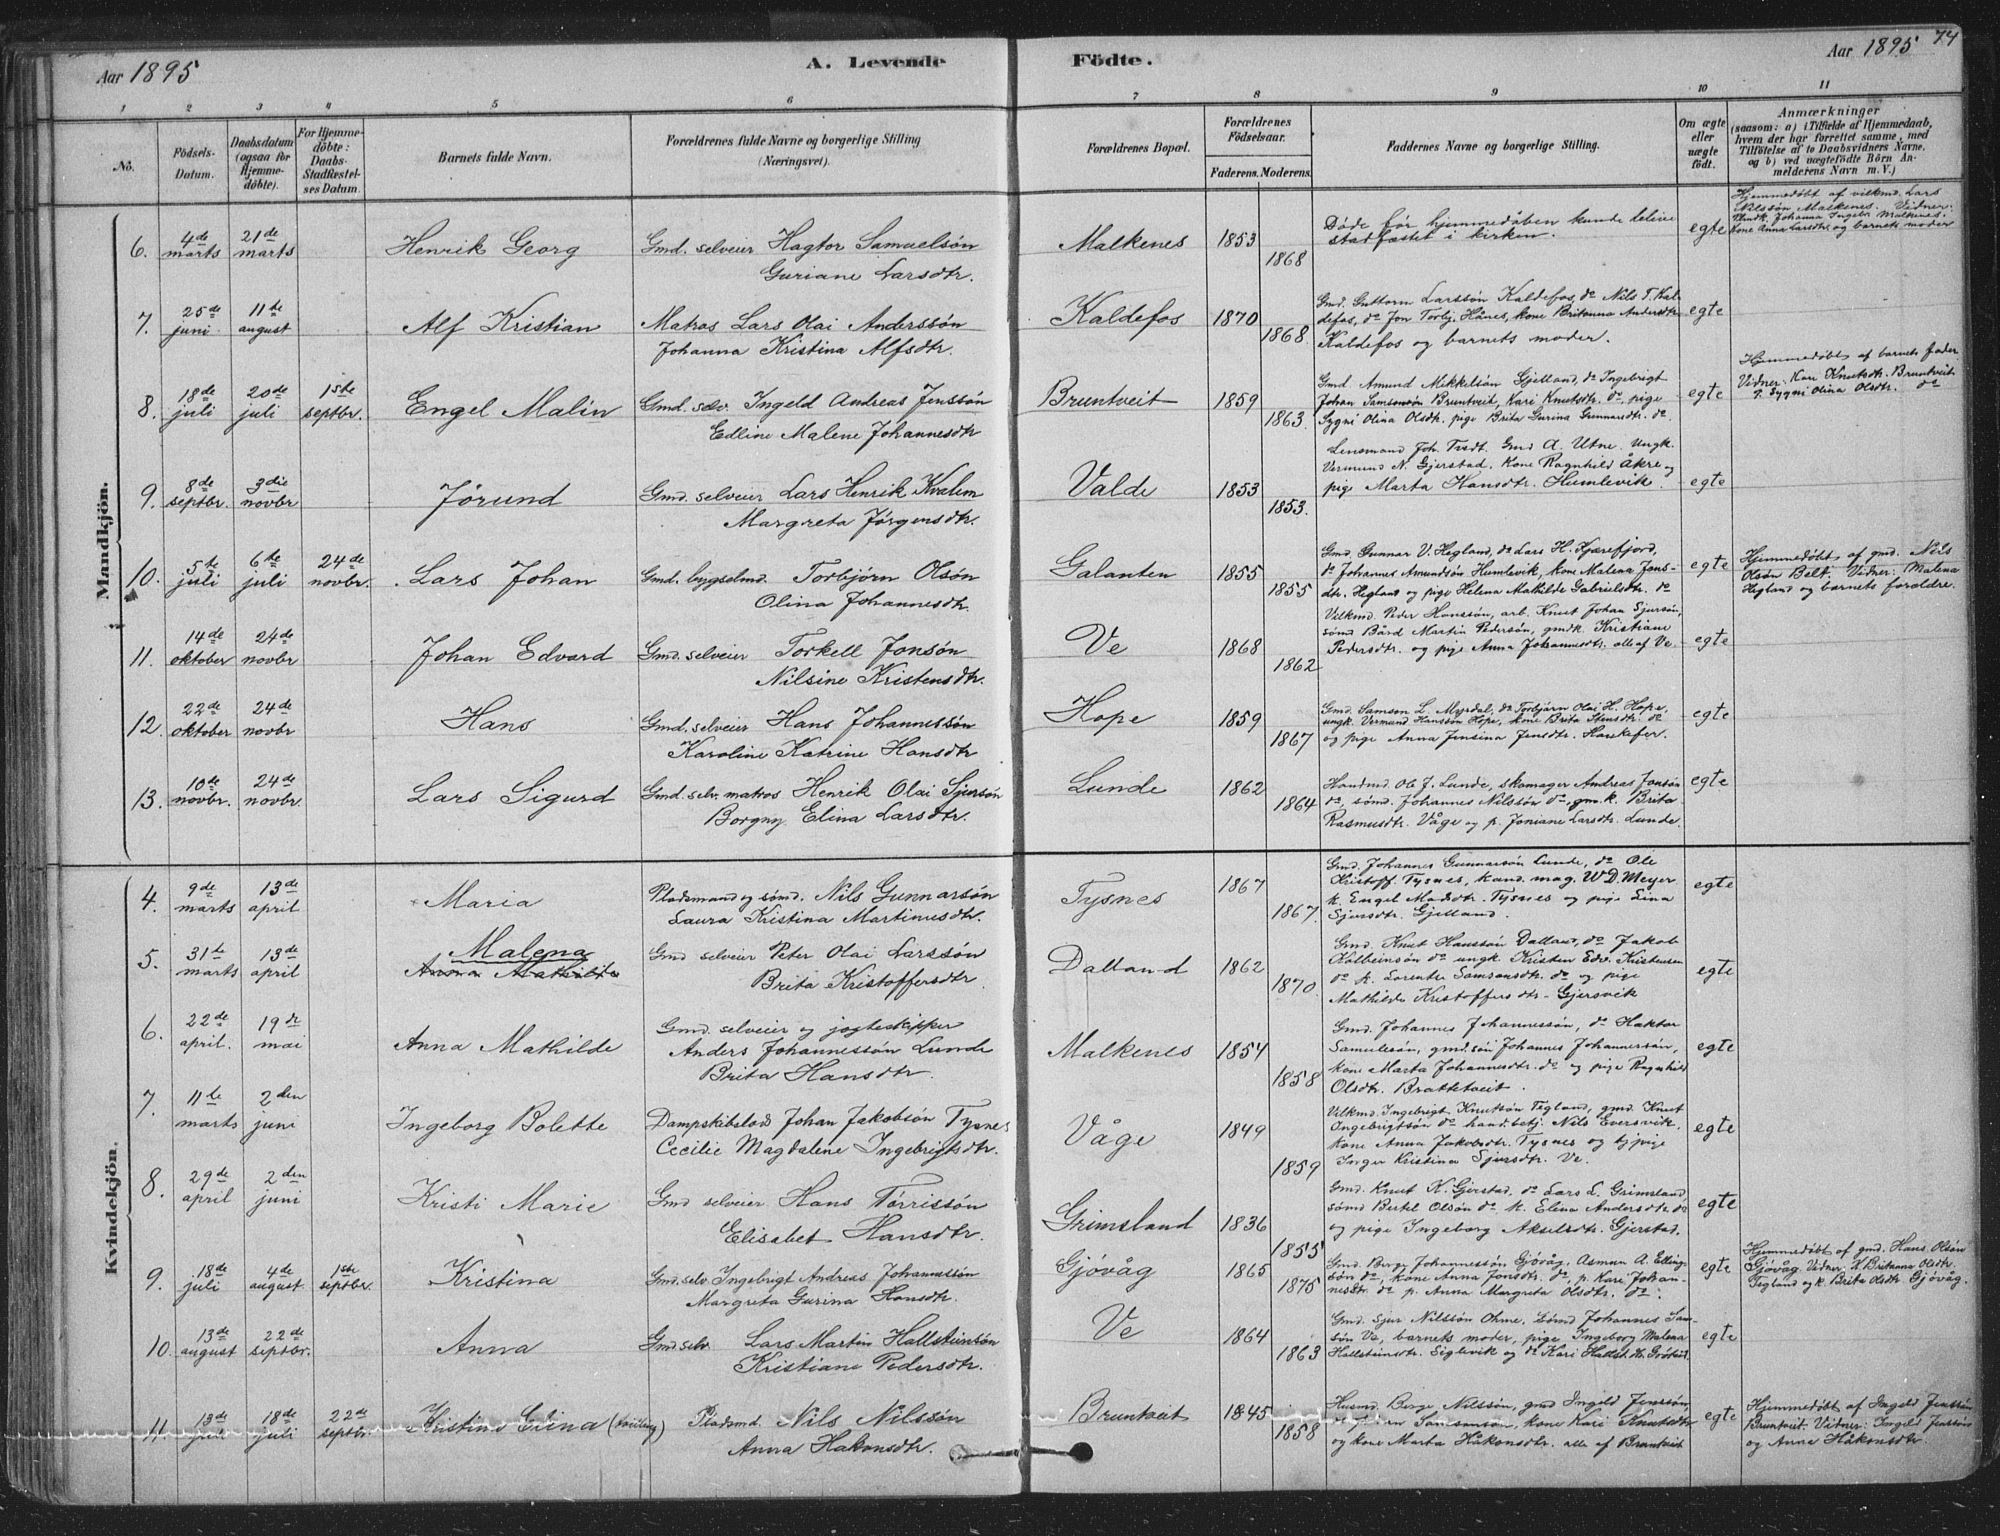 Aar 1895
A. Levende Födte.
Aar 1895 74
1 2 3 4 5 6 7 8 9 10 11
No.
Födsels-Datum.
Daabsdatum (ogsaa for Hjemmedöbte).
For Hjemmedöbte: Daabs-Stadfæstelses Datum.
Barnets fulde Navn.
Forældrenes fulde Navne og borgerlige Stilling (Næringsvei).
Forældrenes Bopæl.
Forældrenes Födselsaar.
Faderens. Moderens.
Faddernes Navne og borgerlige Stilling.
Om ægte eller uægte födt.
Anmærkninger (saasom: a) i Tilfælde af Hjemmedaab, hvem der har forrettet samme, med Tilföielse af to Daabsvidners Navne, og b) ved uægtefödte Börn Anmelderens Navn m. V.)
Mandkjön.
6. 4de marts 21de marts Henrik Georg
Gmd. selveier Hagtor Samuelsön
Guriane Larsdtr.
Malkenes 1853 1868
Døde før hjemmedåben kunde bleive
stadfæstet i kirken.
egte
Hjemmedøbt af vilkmd. Lars
Nilssön Malkenes. Vidner:
Johanna Ingebr. Malkenes.
kone Anna Larsdtr. og barnets moder
7. 25de juni 11te august Alf Kristian
Matros Lars Olai Anderssön
Johanna Kristina Alfsdtr.
Kaldefos 1870 1868
Gmd. Guttorm Larssön Kaldefos, do Nils T. Kal-
defos, do Jon Torbj. Hånes, kone Britanna Andersdtr
Kaldefos og barnets moder.
egte
8. 18de juli 20de juli 1ste septbr. Engel Malin
Gmd. selv. Ingeld Andreas Jenssön
Edline Malene Johannesdtr
Bruntveit 1859 1863
Gmd Amund Mikkelsön Gjelland, do Ingebrigt
Johan Samsonsön Bruntveit, Kari Knutsdtr. do, pige
Sygni Olina Olsdtr. pige Brita Gurina Gunnarsdtr. do
egte
Hjemmedøbt af barnets fader
Vidner: Kari Knutsdtr. Bruntveit
p. Sygni Olina Olsdtr. do
9. 8de septbr. 3die novbr Jørund
Gmd. selveier Lars Henrik Kvalem
Margreta Jørgensdtr.
Valde 1853 1853.
Lensmand Joh. Tvedt. Gmd A. Utne. Ungk.
Vermund N. Gjerstad. Kone Ragnhild Åkre og
pige Marta Hansdtr. Humlevik.
egte
10. 5te juli 6te juli 24de novbr. Lars Johan
Gmd. bygselmd. Torbjørn Olsön
Olina Johannesdtr.
Galanten 1855 1855
Gmd. Gunnar V. Hegland, do Lars H. Kjærefjord,
do Johannes Amundsön Humlevik, kone Malena Jons-
dtr. Hegland og pige Helena Mathilde Gabrielsdtr. do
egte
Hjemmedøbt af gmd. Nils
Olsön Belt. Vidner: Malena
Hegland og barnets forældre.
11. 14de oktober 24de novbr Johan Edvard
Gmd. selveier Torkell Jonsön
Nilsine Kristensdtr.
Ve 1868 1862
Vilkmd. Peder Hanssön, arb. Knut Johan Sjursön,
sømd Bård Martin Pedersön, gmdk. Kristiane
Pedersdtr. og pige Anna Johannesdtr. alle af Ve
egte
12. 22de oktober 24de novbr Hans
Gmd. selveier Hans Johannessön
Karoline Katrine Hansdtr
Hope 1859 1867
Gmd. Samson L. Myrdal, do Torbjørn Olai H. Hope,
ungk. Vermund Hanssön Hope, kone Brita Stensdtr. do
og pige Anna Jensina Jensdtr. Haukefer.
egte
13. 10de novbr. 24de novbr. Lars Sigurd
Gmd. selv. matros Henrik Olai Sjursön
Borgny Elina Larsdtr.
Lunde 1862 1864
Handmd. Ol. J. Lunde, skomager Andreas Jonsön
do, sømd. Johannes Nilssön do, gm.k. Brita
Rasmusdtr. Våge og p. Joniane Larsdtr. Lunde.
egte
Kvindekjön.
4. 9de marts 13de april Maria
Pladsmand og sømd. Nils Gunnarsön
Laura Kristina Martinusdtr.
Tysnes 1867 1867
Gmd. Johannes Gunnarsön Lunde, do Ole
Kristoff. Tysnes, kand. mag. W. D. Meyer
k. Engel Madsdtr. Tysnes og pige Lina
Sjursdtr. Gjelland.
egte
5. 31te marts 13de april Malena
Anna Mathilde
Gmd selveier Peter Olai Larssön
Brita Kristoffersdtr
Dalland 1862 1870
Gmd. Knut Hanssön Dalland, do Jakob
Kolbeinsön do ungk. Kristen Edv. Kristensen
do k. Lorentse Samsonsdtr. do og pige
Mathilde Kristoffersdtr - Gjersvik
egte
6. 22de april. 19de mai Anna Mathilde
Gmd. selveier og jagteskipper
Anders Johannessön Lunde
Brita Hansdtr.
Malkenes 1854 1858
Gmd. Johannes Johannessön, do Haktor
Samulesön, gmd.søn Johannes Johannessön,
kone Marta Johannesdtr. do og pige Ragnhild
Olsdtr. Brattetveit.
egte
7. 11te marts 2den juni Ingeborg Bolette
Dampskibslods Johan Jakobsön Tysnes
Cecilie Magdalene Ingebrigtsdtr.
Våge 1849 1859
Vilkmd. Ingebrigt Knutsön Tegland, gmd. Knut
Ingebrigtsön do handbetj. Nils Eversvik,
kone Anna Jakobsdtr. Tysnes og tj.pige
Inger Kristina Sjursdtr. Ve.
egte
8. 29de april 2den juni Kristi Marie
Gmd selveier Hans Tørrissön
Elisabet Hansdtr.
Grimsland 1836 1855
Gmd. Knut K. Gjerstad, do Lars L. Grimsland,
sømd Bertel Olsön do k. Elena Andersdtr do
og pige Ingeborg Akselsdtr. Gjerstad.
egte
9. 18de juli 4de august 1ste septbr. Kristina
Gmd. selv. Ingebrigt Andreas Johannessön
Margreta Gurina Hansdtr.
Gjövåg 1865 1875
Gmd. Berge Johannessön Gjövåg, Asman A. Elling-
sön do, kone Anna Jonsdtr. do, p. Kari Johan-
nesdtr. do p. Anna Margreta Olsdtr. do.
egte
Hjemmedøbt af gmd. Hans Olsön
Gjövåg. Vidner: K. Britanna Olsdtr.
Tegland og k. Brita Olsdtr. Gjövåg.
10. 13de august 22de septbr. Anna
Gmd. selv. Lars Martin Hallsteinsön
Kristiane Pedersdtr.
Ve 1864 1863
Gmd. Sjur Nilssön Ohme. Sømd Johannes Sam-
sön Ve, barnets moder, pige Ingeborg Malena
Hallsteinsdtr. Siglevik og do Kari Hallst.
egte
11. 13de juli 18de juli 22de septbr. Kristine Elina (tvilling)
Pladsmd. Nils Nilssön
Anna Håkonsdtr.
Bruntveit 1845 1858
Husmd. Berge Nilssön, gmd Ingeld Jenssön,
Samsonsön, kone Kari Knutsdtr
og kone Marta Håkonsdtr. alle af Bruntveit
egte
Hjemmedøbt af Ingeld Jenssön
Bruntveit. Vidner: Ingeld Jenssön
og Anna Håkonsdtr.